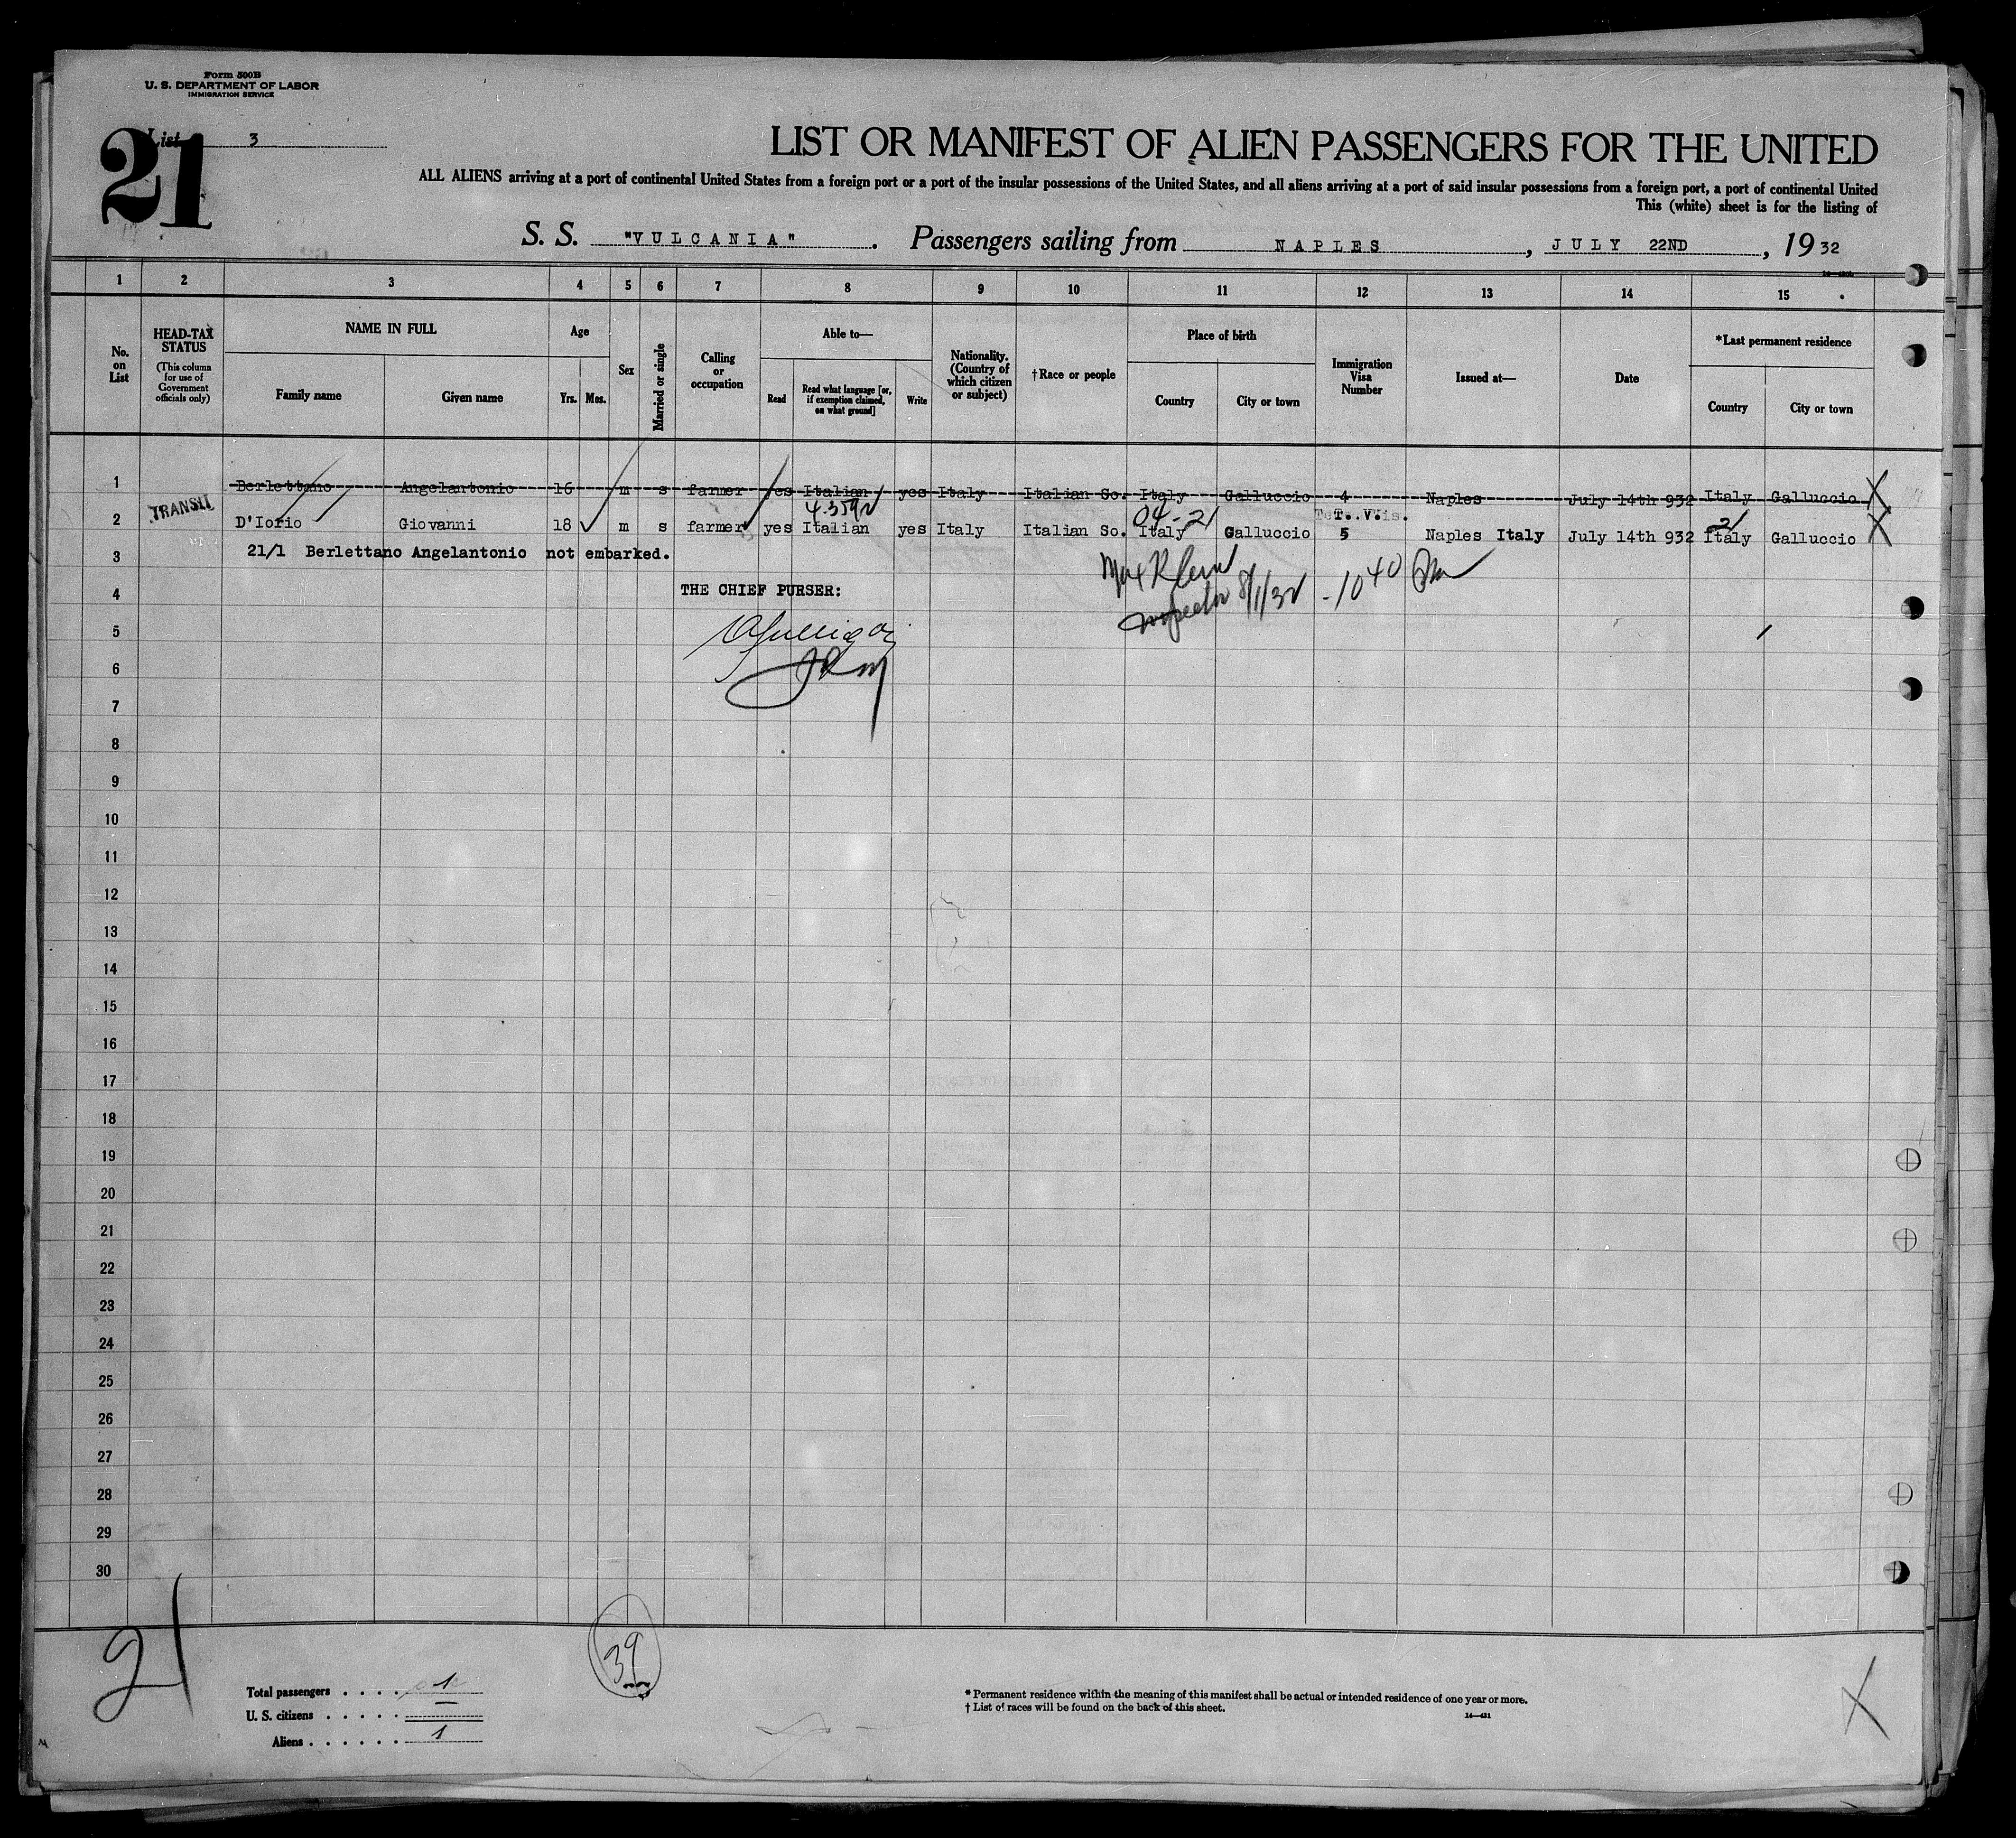 Form 500B
U. S. DEPARTMENT OF LABOR
IMMIGRATION SERVICE
List 3
21
LIST OR MANIFEST OF ALIEN PASSENGERS FOR THE UNITED
ALL ALIENS arriving at a port of continental United States from a foreign port or a port of the insular possessions of the United States, and all aliens arriving at a port of said insular possessions from a foreign port, a port of continental United
This (white) sheet is for the listing of
S. S. "VULCANIA". Passengers sailing from NAPLES, JULY 22ND, 1932
1 2 3 4 5 6 7 8 9 10 11 12 13 14 15
No. on List
HEAD-TAX STATUS
(This column for use of Government officials only)
NAME IN FULL
Family name
Given name
Age
Yrs. Mos.
Sex
Married or single
Calling or occupation
Able to—
Read
Read what language [or, if exemption claimed, on what ground]
Write
Nationality. (Country of which citizen or subject)
†Race or people
Place of birth
Country
City or town
Immigration Visa Number
Issued at—
Date
*Last permanent residence
Country
City or town
1 Berlettano Angelantonio 16 m s farmer yes Italian yes Italy Italian So. Italy Galluccio 4 Naples July 14th 932 Italy Galluccio X
TRANSIT
04-21
T. Vis.
2 D'Iorio Giovanni 18 m s farmer yes Italian yes Italy Italian So. Italy Galluccio 5 Naples Italy July 14th 932 Italy Galluccio X
3 21/1 Berlettano Angelantonio not embarked.
Max Klein
Inspector 8/1/32 - 10 40
4 THE CHIEF PURSER:
5
6
7
8
9
10
11
12
13
14
15
16
17
18
19
20
21
22
23
24
25
26
27
28
29
30
21
39
X
Total passengers . . . . 1
U. S. citizens . . . . .
Aliens . . . . . . 1
* Permanent residence within the meaning of this manifest shall be actual or intended residence of one year or more.
† List of races will be found on the back of this sheet.
14—421